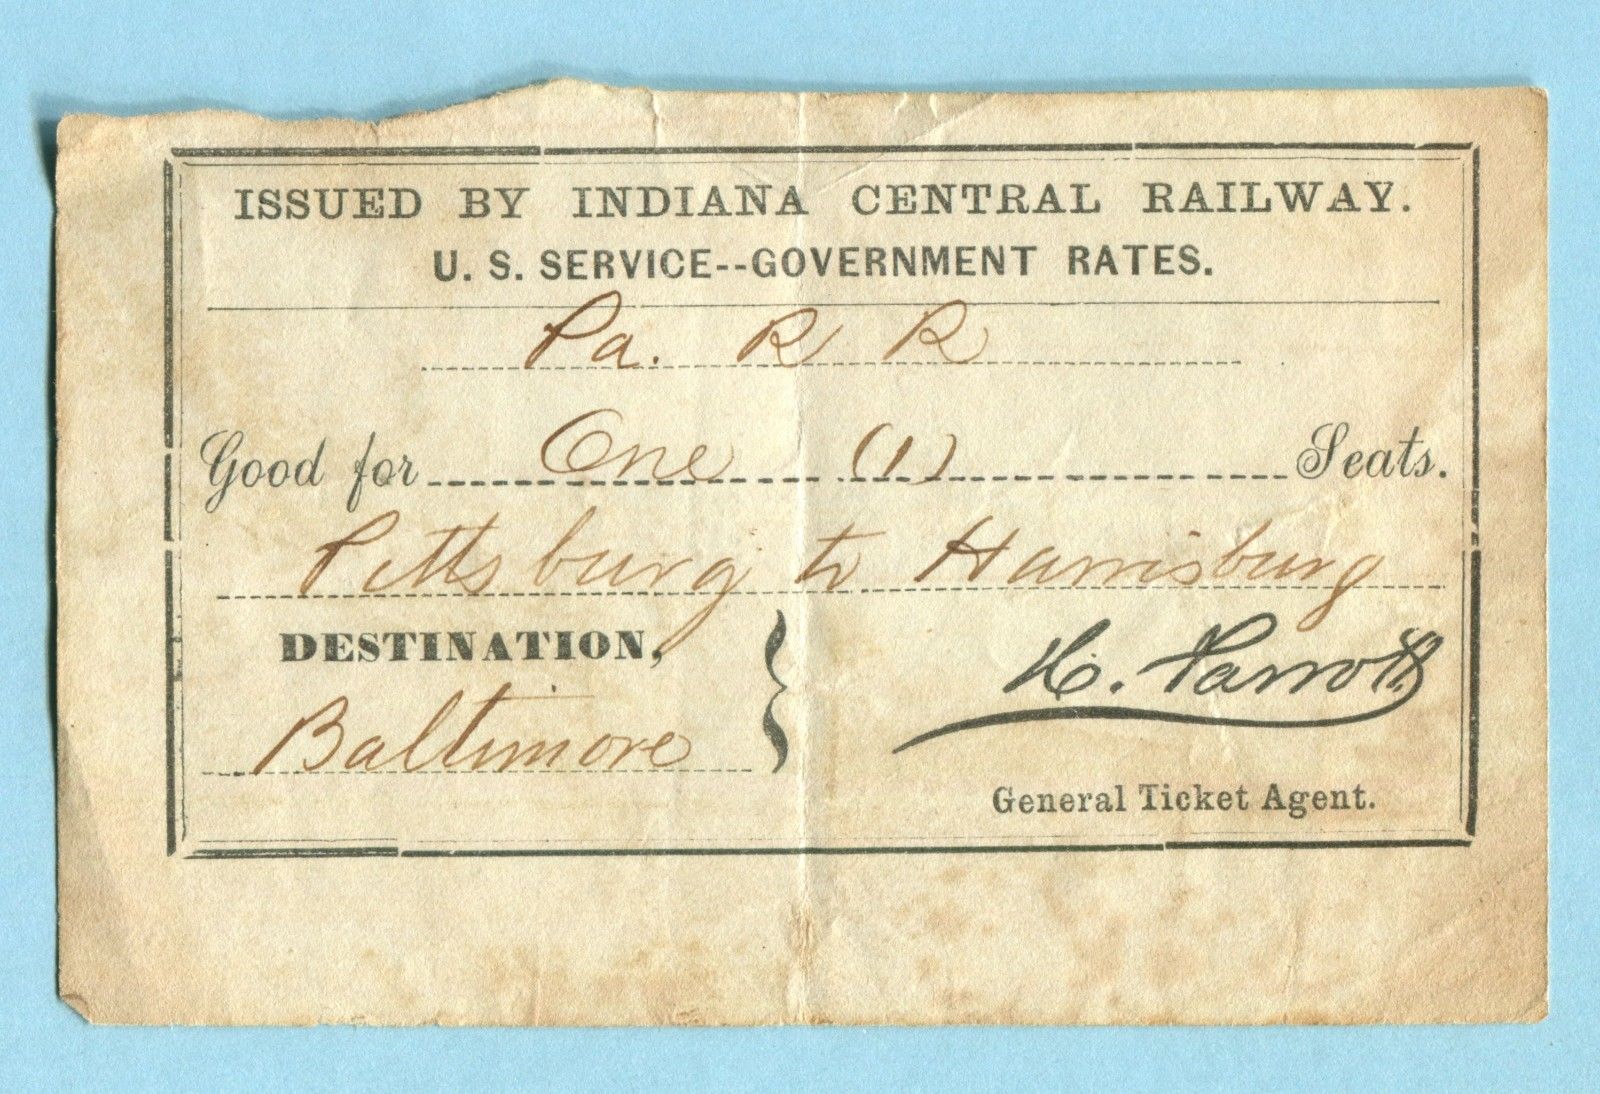 ISSUED BY INDIANA CENTRAL RAILWAY.
U. S. SERVICE--GOVERNMENT RATES.
Pa. R R
Good for One (1) Seats.
Pittsburg to Harrisburg
DESTINATION,
Baltimore
H. Parrott
General Ticket Agent.